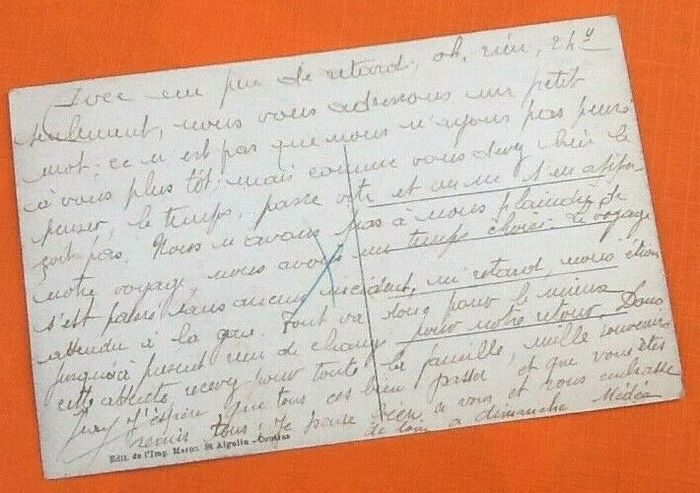 Avec un peu de retard, oh, rien, 24 h
seulement, nous vous adressons un petit
mot; ce n'est pas que nous n'ayons pas pensé
à vous plus tôt; mais comme vous devez bien le
penser, le temps, passe vite et on ne s'en aper
çoit pas. Nous n'avons pas à nous plaindre de
notre voyage, nous avons un temps choisi. Le voyage
s'est passé sans aucun incident, ni retard, nous étions
attendu à la gare. Tout va donc pour le mieux
jusqu'à présent rien de changé pour notre retour. Dans
cette attente recevez pour toute la famille, mille souvenirs
J'espère que tous ces bien passé et que vous êtes
remis tous! Je pense bien à vous et vous embrasse
de loin à dimanche Médée
Edit. de l'Imp. Maron St Aigulin - Coutras